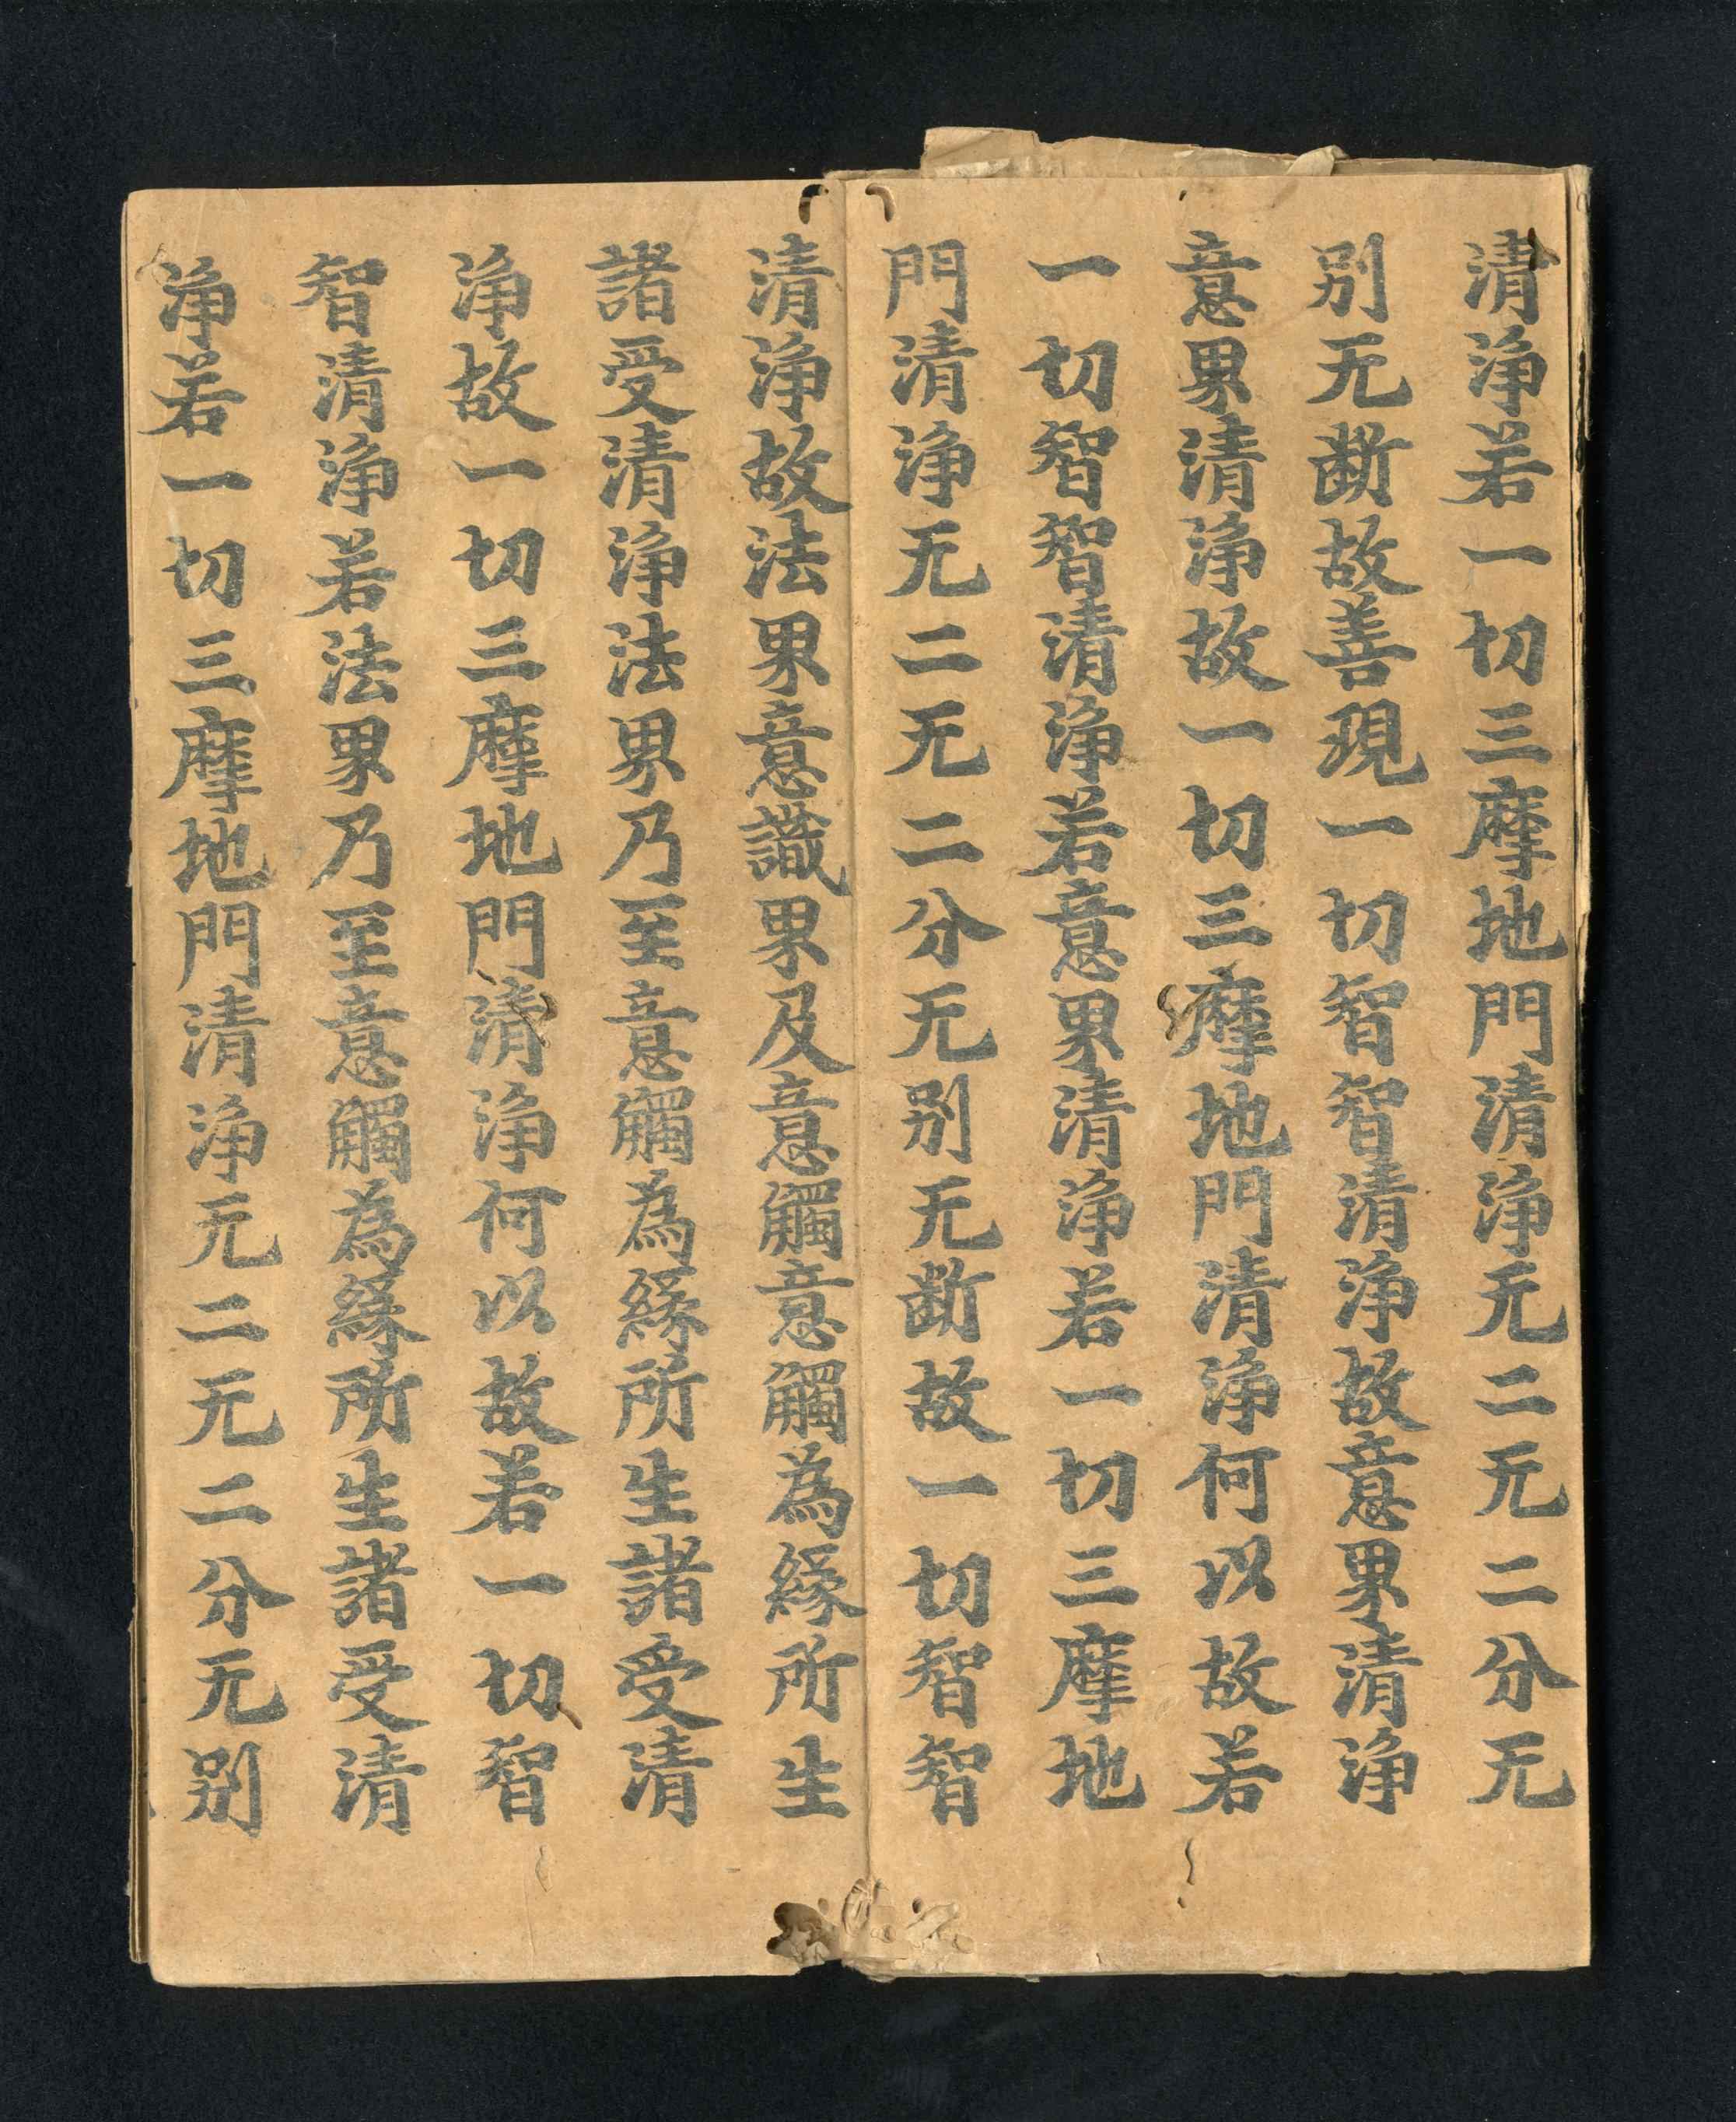 清淨若一切三摩地門清淨无二无二分无
别无斷故善現一切智智清淨故意界清淨
意界清淨故一切三摩地門清淨何以故若
一切智智清淨若意界清淨若一切三摩地
門清淨无二无二分无别无斷故一切智智
清淨故法界意識界及意觸意觸為緣所生
諸受清淨法界乃至意觸為緣所生諸受清
淨故一切三摩地門清淨何以故若一切智
智清淨若法界乃至意觸為緣所生諸受清
淨若一切三摩地門清淨无二无二分无别